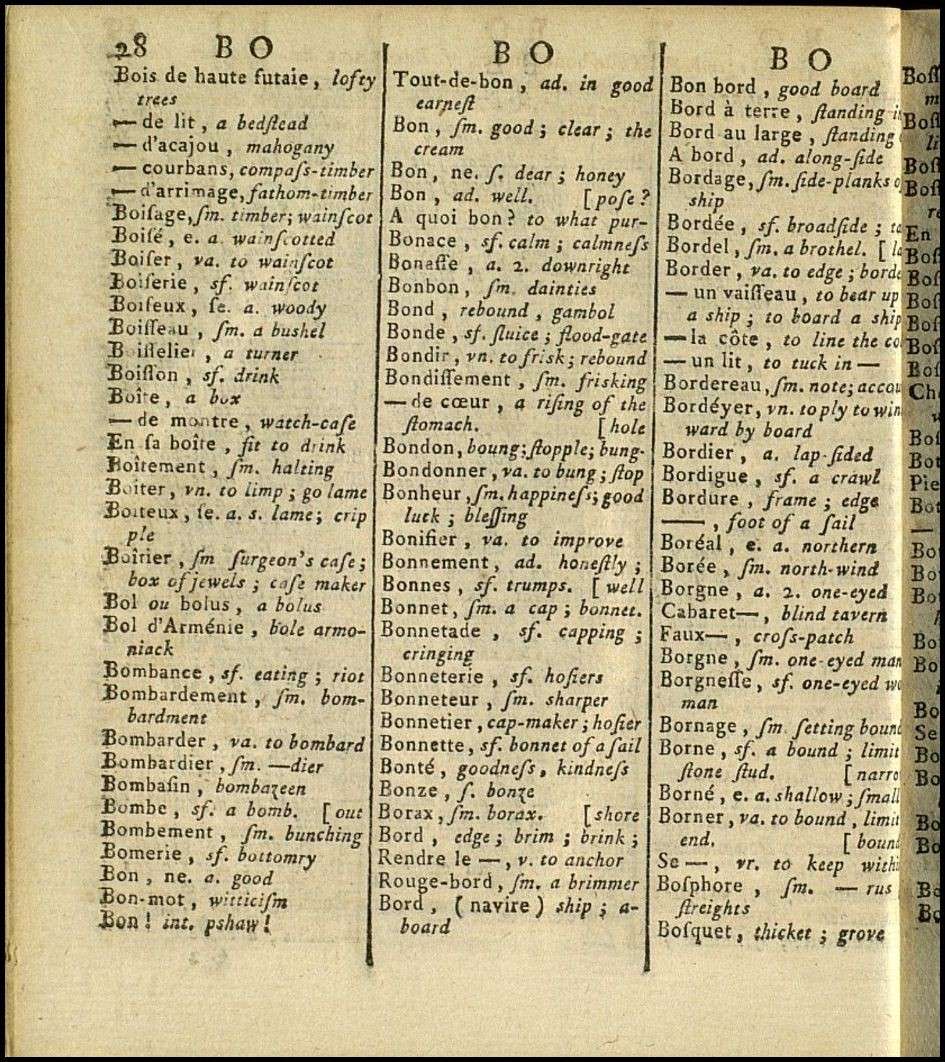 28 B O
Bois de haute futaie, lofty
trees
— de lit, a bedſtead
— d'acajou, mahogany
— courbans, compaſs-timber
— d'arrimage, fathom-timber
Boiſage, ſm. timber; wainſcot
Boiſé, e. a. wainſcotted
Boiſer, va. to wainſcot
Boiſerie, sf. wainſcot
Boiſeux, ſe. a. woody
Boiſſeau, ſm. a bushel
Boiſſelier, a turner
Boiſſon, sf. drink
Boîte, a box
— de montre, watch-caſe
En ſa boîte, fit to drink
Boîtement, ſm. halting
Boiter, vn. to limp; go lame
Boiteux, ſe. a. s. lame; crip
ple
Boîtier, ſm ſurgeon's caſe;
box of jewels; caſe maker
Bol ou bolus, a bolus
Bol d'Arménie, bole armo-
niack
Bombance, sf. eating; riot
Bombardement, ſm. bom-
bardment
Bombarder, va. to bombard
Bombardier, ſm. —dier
Bombaſin, bombazeen
Bombe, sf. a bomb. [out
Bombement, ſm. bunching
Bomerie, sf. bottomry
Bon, ne. a. good
Bon-mot, witticiſm
Bon! int. pshaw!
B O
Tout-de-bon, ad. in good
earneſt
Bon, ſm. good; clear; the
cream
Bon, ne. ſ. dear; honey
Bon, ad. well. [poſe?
A quoi bon? to what pur-
Bonace, sf. calm; calmneſs
Bonaſſe, a. 2. downright
Bonbon, ſm. dainties
Bond, rebound, gambol
Bonde, sf. ſluice; flood-gate
Bondir, vn. to frisk; rebound
Bondiſſement, ſm. frisking
— de cœur, a riſing of the
ſtomach. [hole
Bondon, boung; ſtopple; bung-
Bondonner, va. to bung; ſtop
Bonheur, ſm. happineſs; good
luck; bleſſing
Bonifier, va. to improve
Bonnement, ad. honeſtly;
Bonnes, sf. trumps. [well
Bonnet, ſm. a cap; bonnet.
Bonnetade, sf. capping;
cringing
Bonneterie, sf. hoſiers
Bonneteur, ſm. sharper
Bonnetier, cap-maker; hoſier
Bonnette, sf. bonnet of a ſail
Bonté, goodneſs, kindneſs
Bonze, ſ. bonze
Borax, ſm. borax. [shore
Bord, edge; brim; brink;
Rendre le —, v. to anchor
Rouge-bord, ſm. a brimmer
Bord, (navire) ship; a-
board
B O
Bon bord, good board
Bord à terre, ſtanding i
Bord au large, ſtanding
A bord, ad. along-ſide
Bordage, ſm. ſide-planks o
ship
Bordée, sf. broadſide; ta
Bordel, ſm. a brothel. [la
Border, va. to edge; borde
— un vaiſſeau, to bear up
a ship; to board a ship
— la côte, to line the co
— un lit, to tuck in —
Bordereau, ſm. note; accou
Bordéyer, vn. to ply to win
ward by board
Bordier, a. lap-ſided
Bordigue, sf. a crawl
Bordure, frame; edge
——, foot of a ſail
Boréal, e. a. northern
Borée, ſm. north-wind
Borgne, a. 2. one-eyed
Cabaret—, blind tavern
Faux—, croſs-patch
Borgne, ſm. one-eyed man
Borgneſſe, sf. one-eyed wo
man
Bornage, ſm ſetting bound
Borne, sf. a bound; limit
ſtone ſtud. [narro
Borné, e. a. shallow; ſmall
Borner, va. to bound, limit
end. [bound
Se —, vr. to keep withi
Boſphore, ſm. — rus
ſtreights
Boſquet, thicket; grove